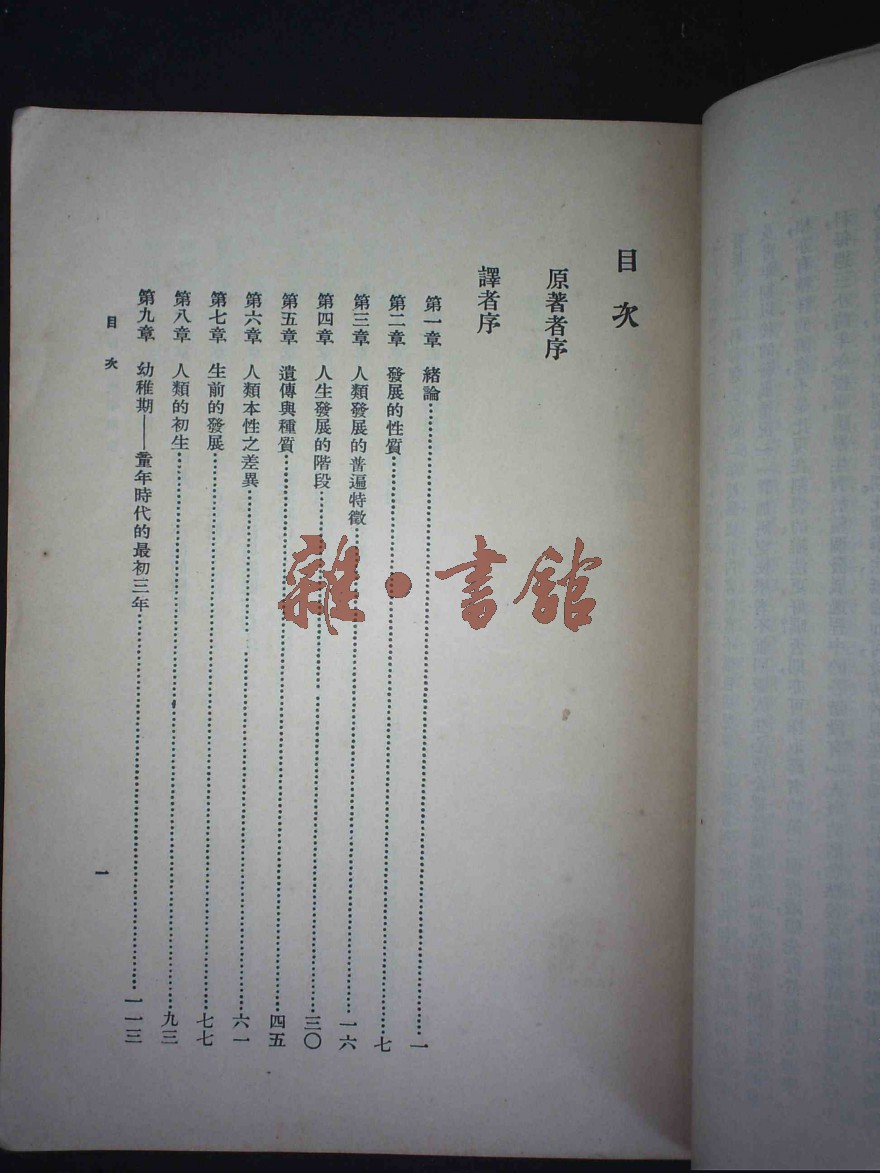 目次
原著者序
譯者序
第一章 緒論……一
第二章 發展的性質……七
第三章 人類發展的普遍特徵……一六
第四章 人生發展的階段……三〇
第五章 遺傳與種質……四五
第六章 人類本性之差異……六一
第七章 生前的發展……七七
第八章 人類的初生……九三
第九章 幼稚期——童年時代的最初三年……一一三
目次
一
雜·書館